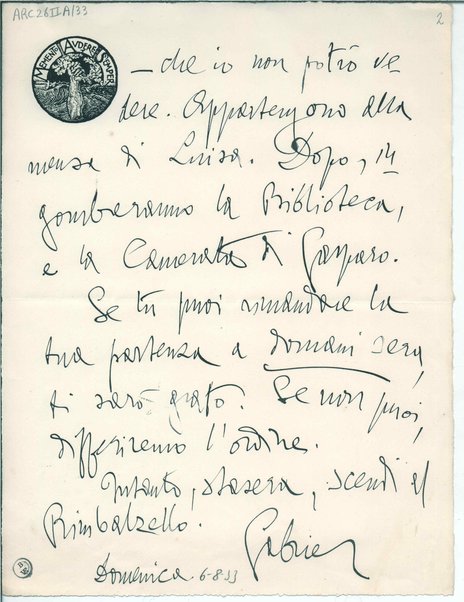 ARC 26 II A/33
2
MEMENTO AUDERE SEMPER
— che io non potrò ve
dere. Appartengono alla
mensa di Luisa. Dopo, in
gombreranno la Biblioteca,
e la Camerata di Gasparo.
Se tu puoi rimandare la
tua partenza a domani sera,
ti sarò grato. Se non puoi,
differiremo l'ordine.
Intanto, stasera, scendi al
Rimbalzello.
Gabriel
Domenica. 6-8-33